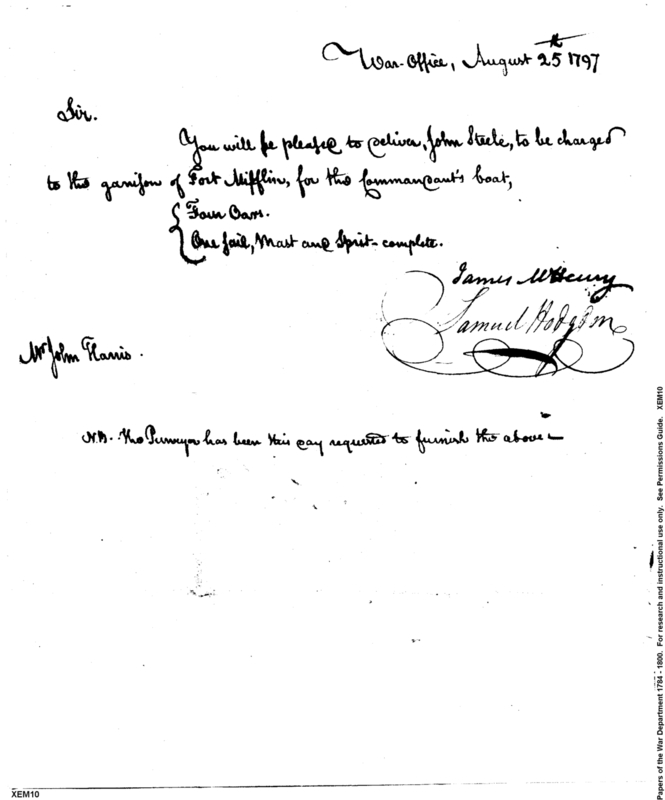 War-Office, August 25th 1797
Sir.
You will be pleased to deliver, John Steele, to be charged
to the garrison of Fort Mifflin, for the Commandant's boat,
Four Oars.
One sail, Mast and Sprit - complete.
James McHenry
Samuel Hodgdon
Mr John Harris.
NB. The Purveyor has been this day requested to furnish the above -
Papers of the War Department 1784 - 1800. For research and instructional use only. See Permissions Guide. XEM10
XEM10